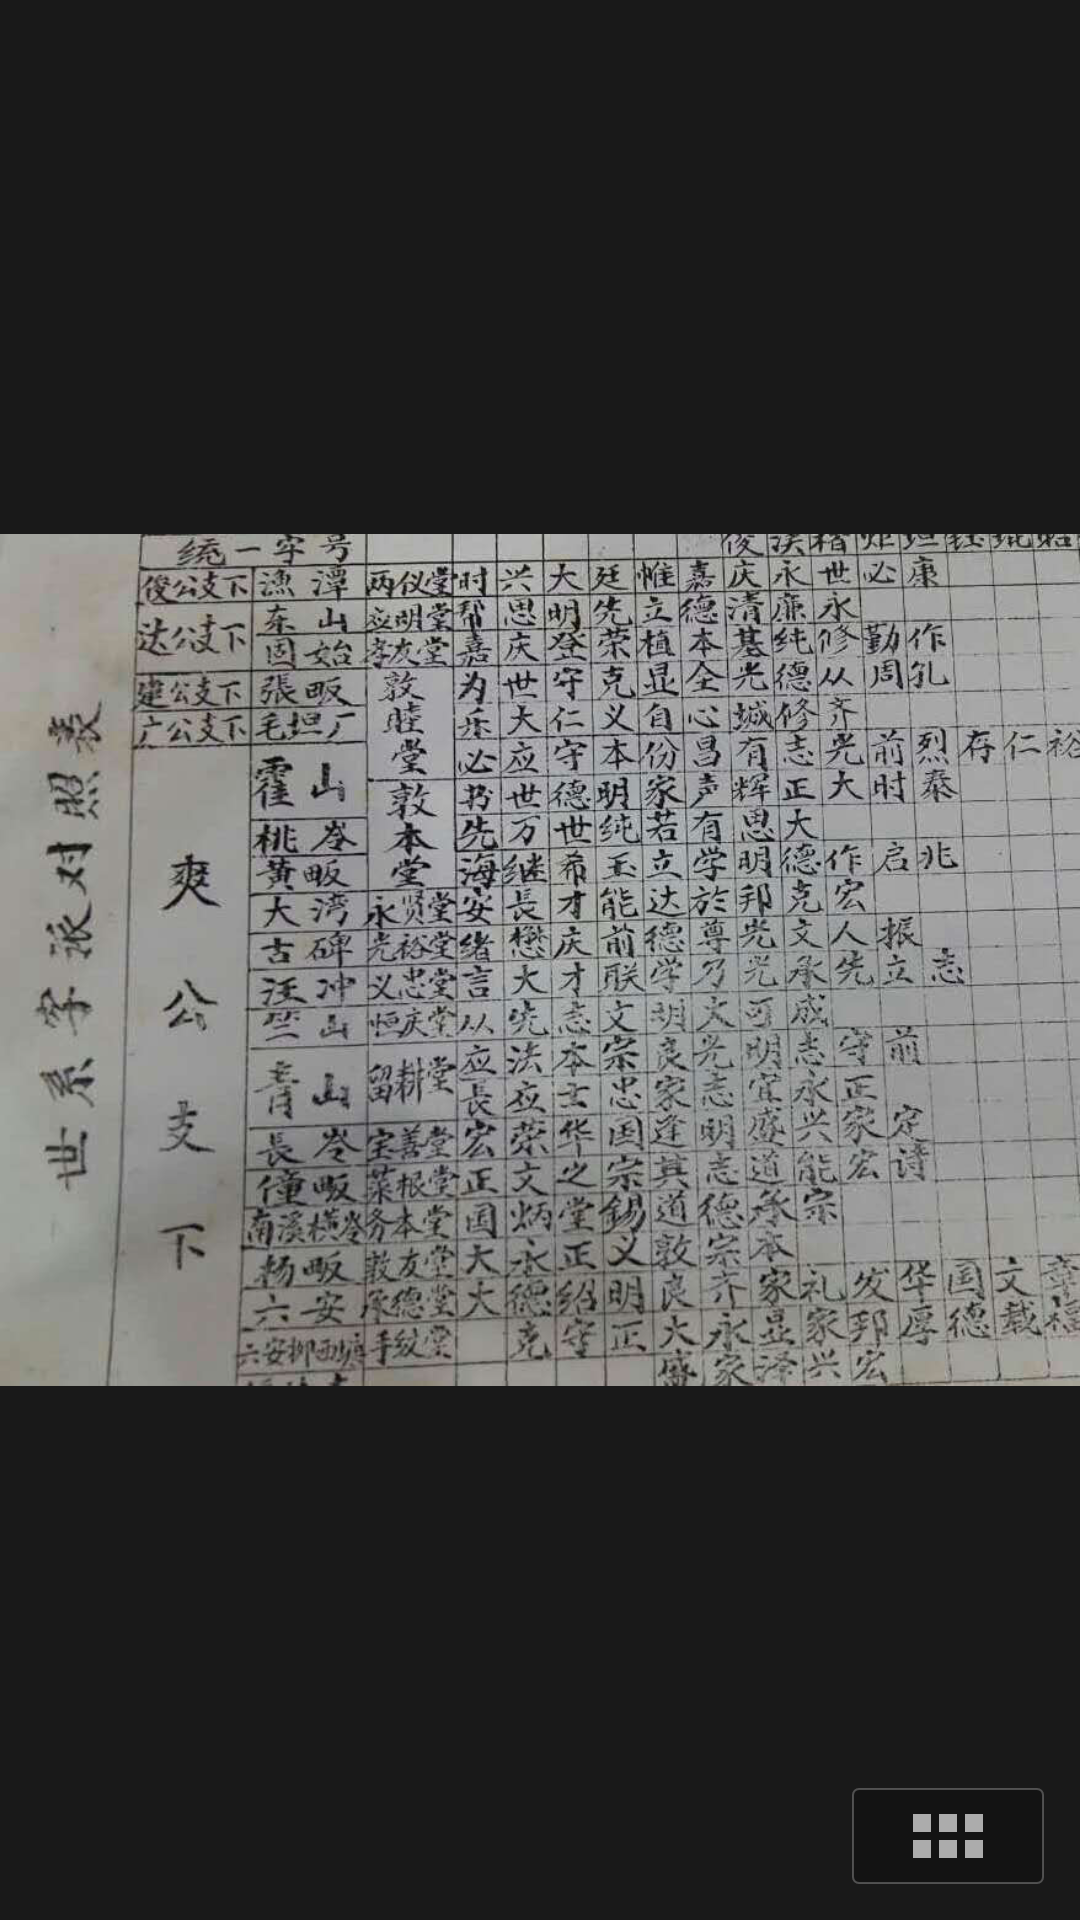 世系字派对照表
统一字号 俊 溪 稽 炉
俊公支下 渔潭 两仪堂 时 兴 大 廷 惟 嘉 庆 永 世 必 康
达公支下 东山 应明堂 帮 思 明 先 立 德 清 廉 永
固始 孝友堂 嘉 庆 登 荣 植 本 基 纯 修 勤 作
建公支下 張畈 敦睦堂 为 世 守 克 显 全 光 德 从 周 孔
广公支下 毛坦厂 乐 大 仁 义 自 心 城 修 齐
爽公支下
霍山 必 应 守 本 份 昌 有 志 光 前 烈 存 仁 裕
敦本堂 书 世 德 明 家 声 辉 正 大 时 泰
桃岺 先 万 世 纯 若 有 思 大
黄畈 海 继 希 玉 立 学 明 德 作 启 兆
大湾 永贤堂 安 長 才 能 达 於 邦 克 宏
古碑 光裕堂 绪 懋 庆 前 德 尊 光 文 人 振
汪冲 义忠堂 言 大 才 联 学 乃 光 承 先 立 志
竺山 恒庆堂 从 先 志 文 明 大 可 成
青山 留耕堂 应 法 本 宗 良 光 明 志 守 前
長 应 玄 忠 家 志 宜 永 正
長岺 宝善堂 宏 荣 华 国 逢 明 盛 兴 家 定
僮畈 菜根堂 正 文 之 宗 其 志 道 能 宏 诗
南溪横岺 务本堂 国 炳 堂 錫 道 德 承 宗
杨畈 敦友堂 大 永 正 义 敦 宗 本
六安 承德堂 大 德 绍 明 良 齐 家 礼 发 华 国 文 章
六安柳西塘 手纹堂 克 守 正 大 永 显 家 邦 厚 德 载 福
盛 家 泽 兴 宏